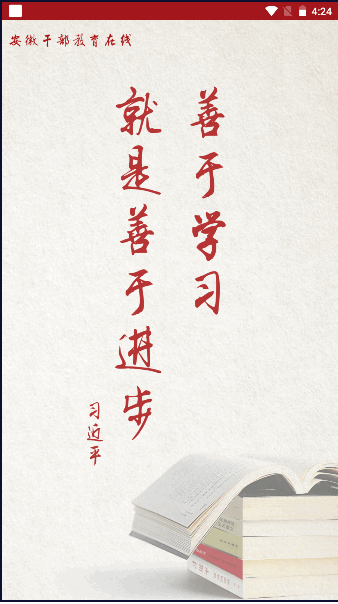 4:24
安徽干部教育在线
善于学习
就是善于进步
习近平